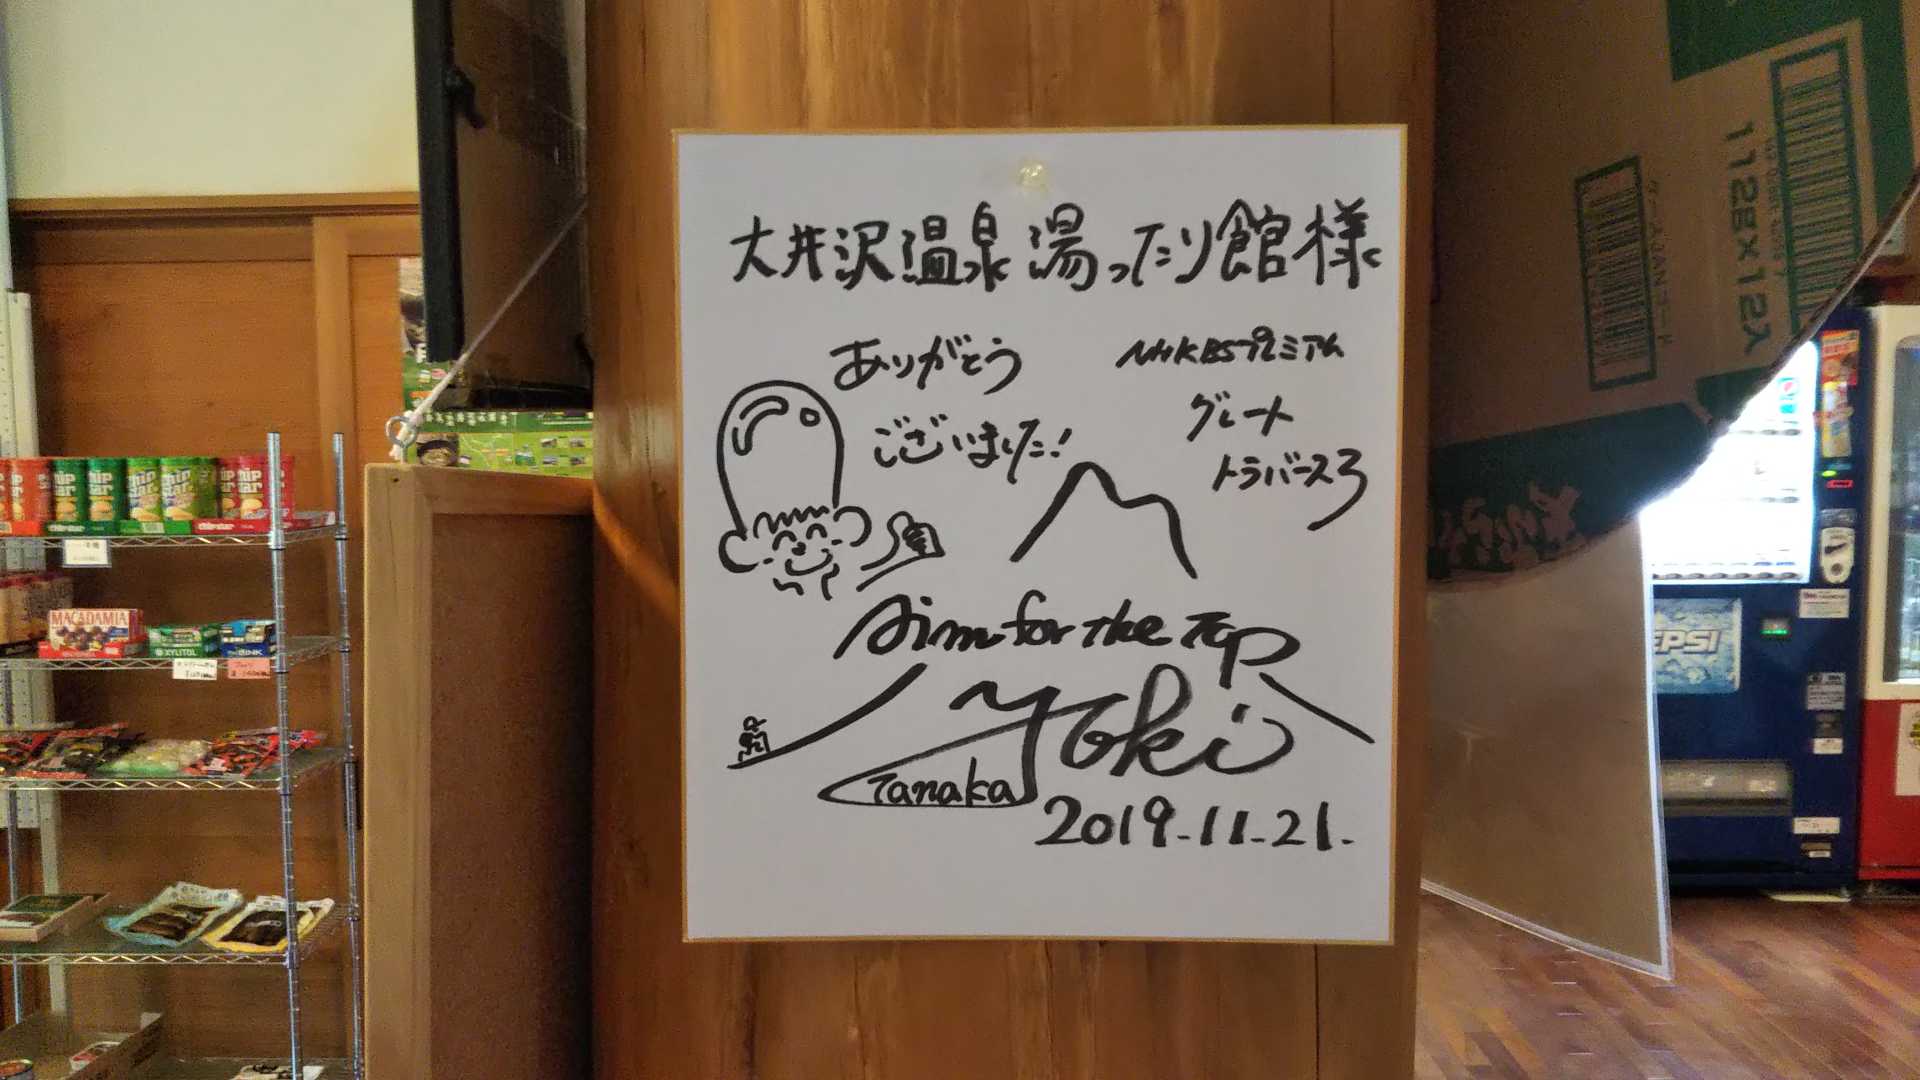 大井沢温泉 湯ったり館様
ありがとう
ございました!
NHK BSプレミアム
グレート
トラバース3
Aim for the Top
Yoki
Tanaka
2019.11.21.
chip star
MACADAMIA
XYLITOL
PEPSI
112g×12入